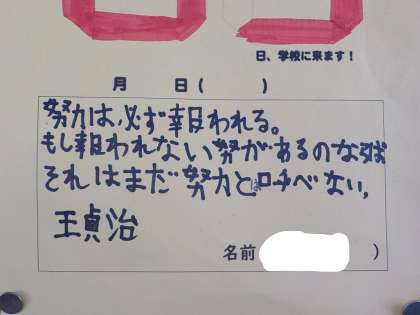 日、学校に来ます!
月 日( )
努力は、必ず報われる。
もし報われない努があるのならば
それはまだ努力とは呼べない。
王貞治
名前 )